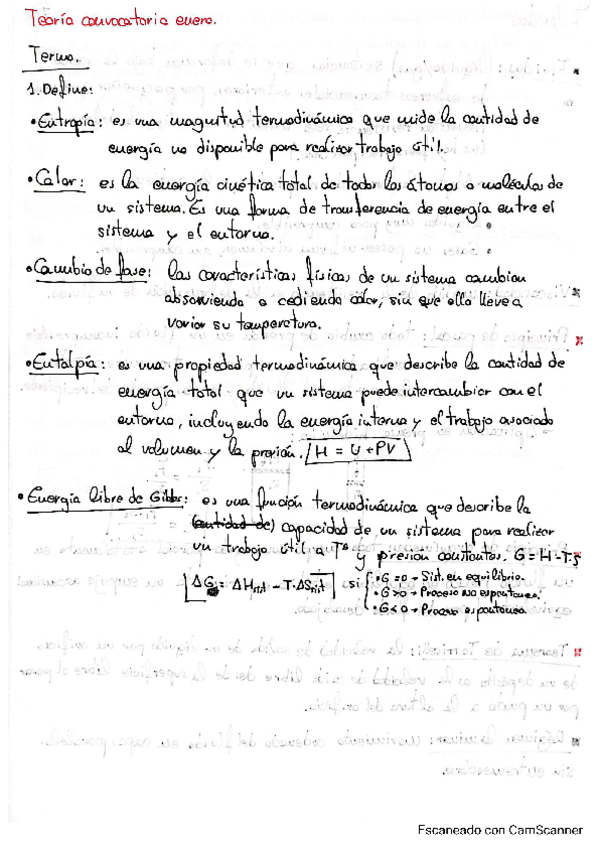 Teoría convocatoria enero.
Termo.
1. Define:
• Entropía: es una magnitud termodinámica que mide la cantidad de
energía no disponible para realizar trabajo útil.
• Calor: es la energía cinética total de todos los átomos o moléculas de
un sistema. Es una forma de transferencia de energía entre el
sistema y el entorno.
• Cambio de fase: las características físicas de un sistema cambian
absorviendo o cediendo calor, sin que ello lleve a
variar su temperatura.
• Entalpía: es una propiedad termodinámica que describe la cantidad de
energía total que un sistema puede intercambiar con el
entorno, incluyendo la energía interna y el trabajo asociado
al volumen y la presión. H = U + PV
• Energía libre de Gibbs: es una función termodinámica que describe la
(cantidad de) capacidad de un sistema para realizar
un trabajo útil a Tª y presión constantes. G = H - T·S
ΔG = ΔHsist - T·ΔSsist si • G = 0 → Sist. en equilibrio.
• G > 0 → Proceso no espontáneo.
• G < 0 → Proceso espontáneo
Escaneado con CamScanner